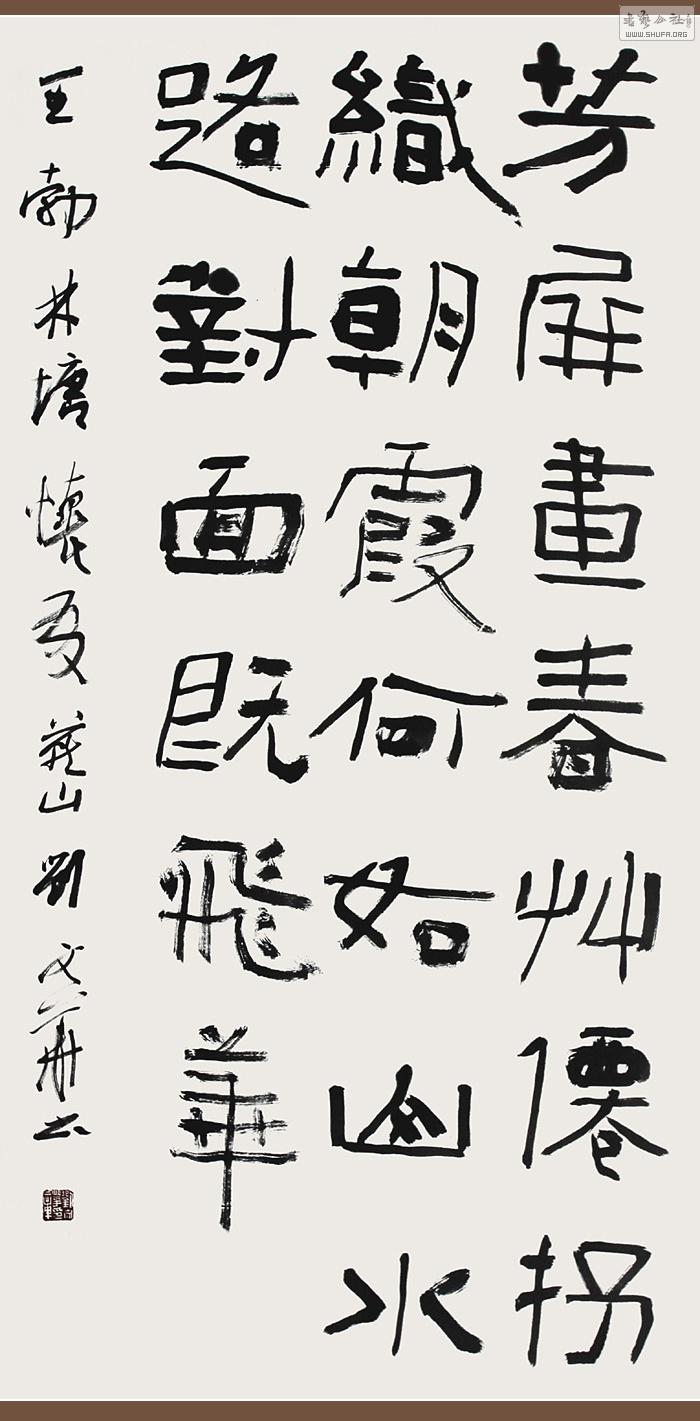 芳屏畫春艸僊杼
織朝霞何如山水
路對面既飛華
王勃林塘懷友燕山劉文華书
书艺公社
WWW.SHUFA.ORG